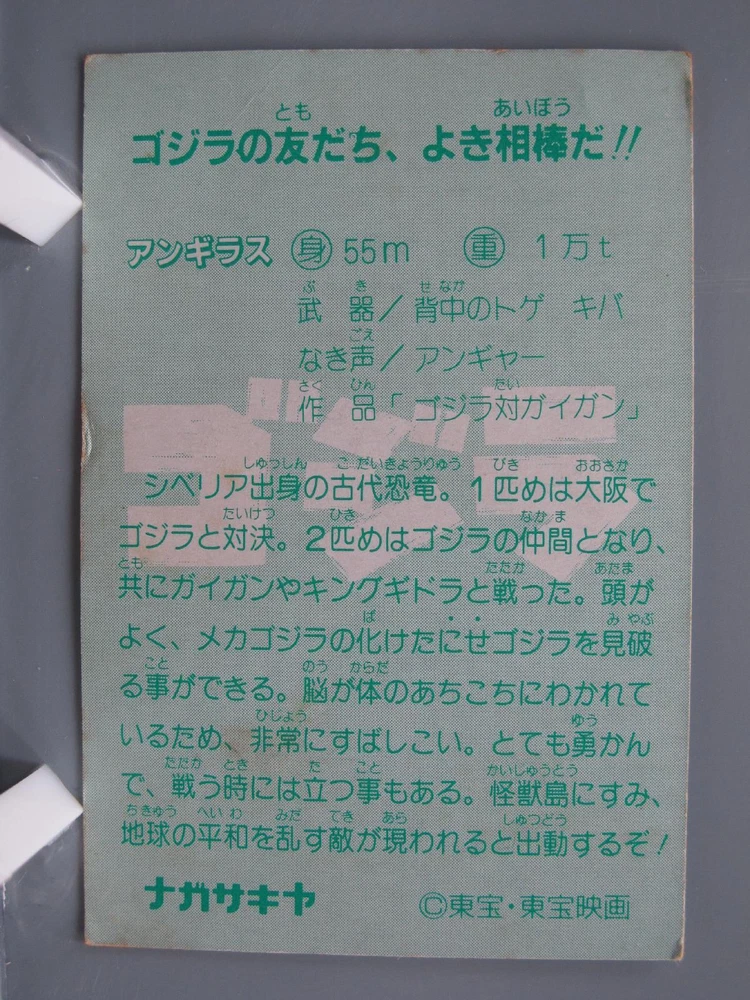 ゴジラの友だち、よき相棒だ!!
アンギラス 身 55m 重 1万t
武器/背中のトゲ キバ
なき声/アンギャー
作品「ゴジラ対ガイガン」
シベリア出身の古代恐竜。1匹めは大阪で
ゴジラと対決。2匹めはゴジラの仲間となり、
共にガイガンやキングギドラと戦った。頭が
よく、メカゴジラの化けたにせゴジラを見破
る事ができる。脳が体のあちこちにわかれて
いるため、非常にすばしこい。とても勇かん
で、戦う時には立つ事もある。怪獣島にすみ、
地球の平和を乱す敵が現われると出動するぞ!
ナガサキヤ ©東宝・東宝映画